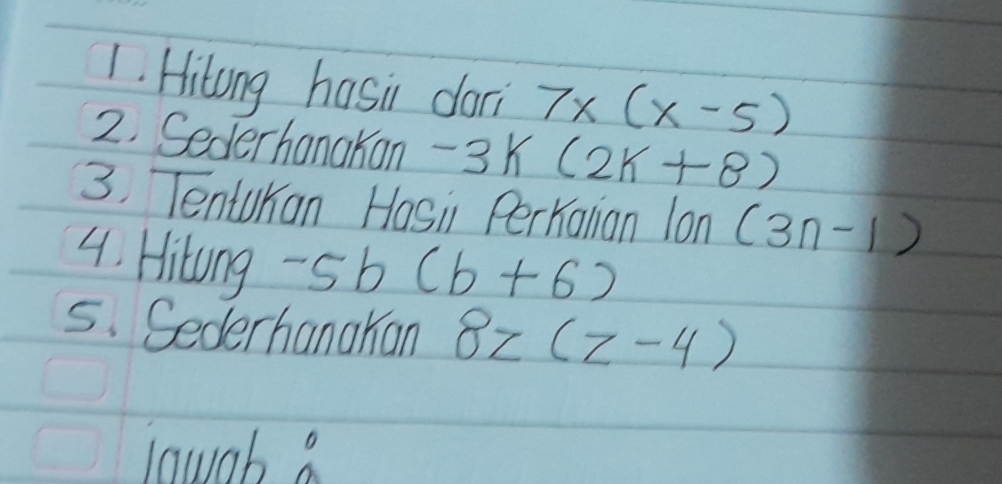 1. Hitung hasil dari 7x (x - 5)
2. Sederhanakan -3k (2k + 8)
3. Tentukan Hasil Perkalian 10n (3n - 1)
4. Hitung -5b (b + 6)
5. Sederhanakan 8z (z - 4)
Jawab :